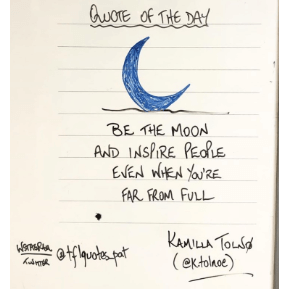 QUOTE OF THE DAY
BE THE MOON
AND INSPIRE PEOPLE
EVEN WHEN YOU'RE
FAR FROM FULL
KAMILLA
INSTAGRAM
TWITTER
@tflquotes_pat
(@k.tolnoe)